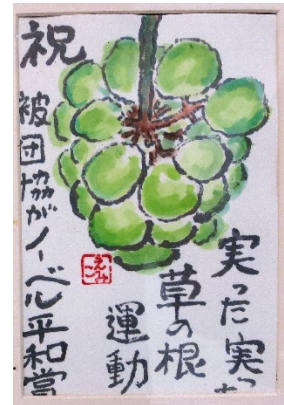 実った実った
草の根
運動
えみこ
祝
被団協がノーベル平和賞